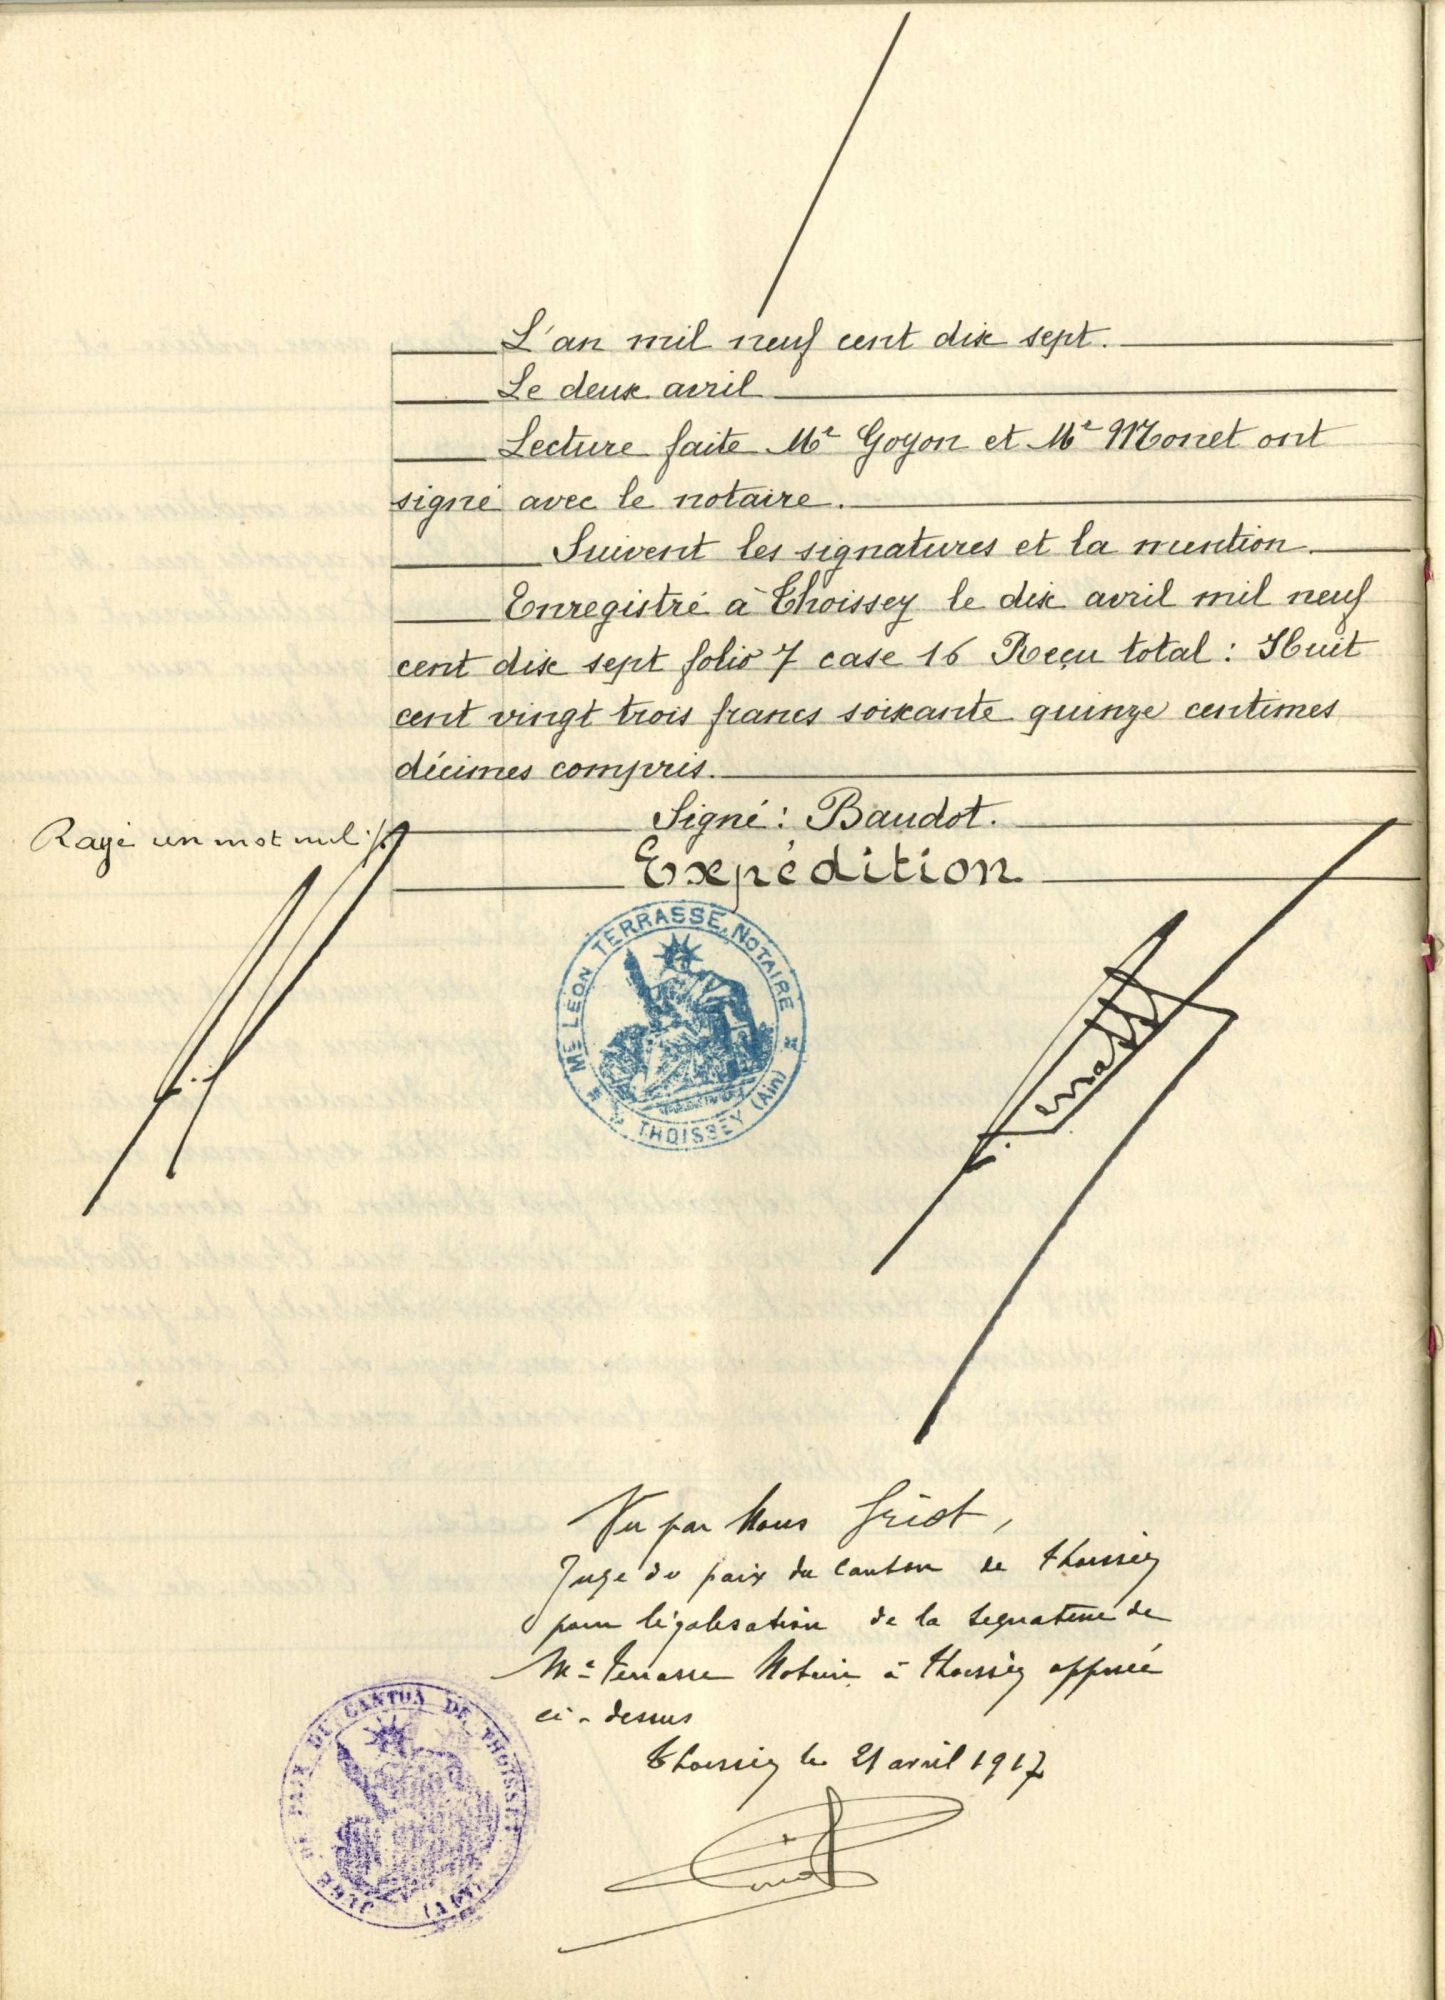 L'an mil neuf cent dix sept.
Le deux avril
Lecture faite Me Goyon et Me Monet ont
signé avec le notaire.
Suivent les signatures et la mention.
Enregistré à Thoissey le dix avril mil neuf
cent dix sept folio 7 case 16 Reçu total : Huit
cent vingt trois francs soixante quinze centimes
décimes compris.
Signé : Baudot.
Rayé un mot nul ./.
Expédition
ME LÉON TERRASSE, NOTAIRE
À THOISSEY (Ain)
Vu par Nous Griot,
Juge de paix du Canton de Thoissey
pour légalisation de la signature de
Me Terrasse Notaire à Thoissey apposée
ci-dessus
Thoissey le 21 avril 1917
JUGE DE PAIX DU CANTON DE THOISSEY
(AIN)